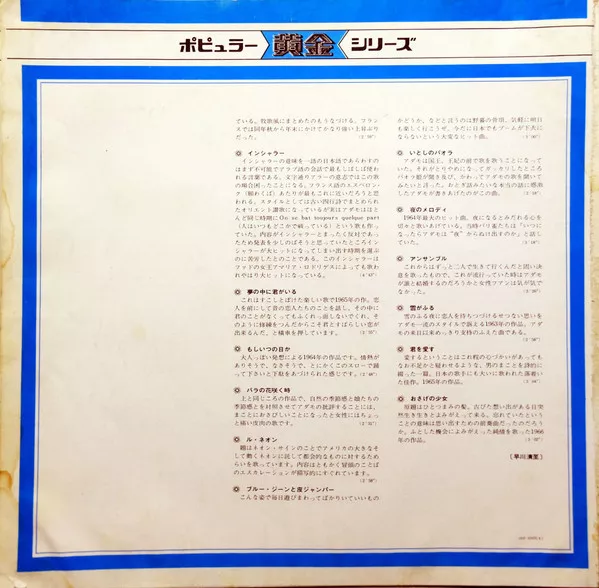 ポピュラー 黄金 シリーズ
ている。牧歌風にまとめたのもうなづける。フラン
スでは同年秋から年末にかけてかなり強い上昇ぶり
だった。
インシャラー
インシャラーの意味を一語の日本語であらわすの
はまず不可能でアラブ語の会話で最もしばしば使わ
れる言葉である。文字通りアラーの意志ではこの歌
の場合困ったことになる。フランス語のエスペロン・
(願わくば) あたりが最もこれに近いだろうと思
われる。スタイルとしては古い四行詩でまとめられ
たオリエント讃歌になっているが実はアダモはほと
んど同じ時期に(On se bat toujours quelque part
(人はいつもどこかで戦っている) という歌も作っ
ていた。内容がインシャラーとまったく反対であっ
たため発表を少しのばそうと思っていたところイン
シャラーが大ヒットになってしまい出す時期を選ぶ
のに苦労したとのことである。このインシャラーは
ファドの女王アマリア・ロドリゲスによっても歌わ
れやはり大ヒットになっている。
夢の中に君がいる
これはすこしとぼけた楽しい歌で1965年の作。恋
人を前にして昔の恋人たちのことを話し、その中に
君のことがなくってもふくれっ面しないでくれ、そ
のように修練をつんだからこそ君とすばらしい恋が
出来るんだ、と横車を押しています。
もしいつの日か
大人っぽい発想による1964年の作品です。情熱が
ありそうで、なさそうで、とにかくこのスローで踊
って下さいと下駄をあづけられた感じです。
バラの花咲く時
上と同じころの作品で、自然の季節感と娘たちの
季節感とを対照させてアダモの批評することには、
まことにおきびしいことになったと女性にはちょっ
と痛い皮肉の歌です。
ル・ネオン
題はネオン・サインのことでアメリカの大きなそ
して動くネオンに託して都会的なものに対するため
らいを歌っています。内容はともかく冒頭のことば
のエスカレーションが描写的にすぐれています。
ブルー・ジーンと皮ジャンパー
こんな姿で毎日遊びまわってばかりいていいもの
かどうか、などと言うのは野暮の骨頂、気軽に明日
も楽しく行こうぜ。今だに日本でもブームが下火に
ならないという大変なヒット曲。
いとしのパオラ
アダモは国王、王妃の前で歌を歌うことになって
いた。それがとりやめになってガッカリしたところ
パオラ姫が聞き及び、かわってアダモの歌を聞いて
みたいと言った。かとぎ話みたいな本当の話に感激
したアダモが書きあげたのがこの曲。
夜のメロディ
1964年最大のヒット曲。夜になるとみだれる心を
切々と歌いあげている。当時パリ雀たちは“いつに
なったらアダモは“夜”からぬけ出すのか”と話し
ていた。
アンサンブル
これからはずっと二人で生きて行くんだと固い決
意を歌ったもので、これが流行っていた時はアダモ
が誰と結婚するのだろうかと女性ファンは気が気で
なかった。
雪がふる
雪のふる夜に恋人を待ちつづけるせつない思いを
アダモ一流のスタイルで訴える1963年の作品。アダ
モの来日以来めっきり支持のふえた曲である。
君を愛す
愛するということはこれ程の心づかいがあっても
なお不足かと疑わせるような、男のまことを詩的に
綴った一篇。日本の歌手にも大いに歌われた落着い
た佳作。1965年の作品。
おさげの少女
原題はひとつまみの髪。古びた想い出がある日突
然生き生きとよみがえって来る。忘れていたという
ことの意味は思い出すための前奏曲だったのだろう
か。ふとした機会によみがえった純情を歌った1966
年の作品。
〔早川清至〕